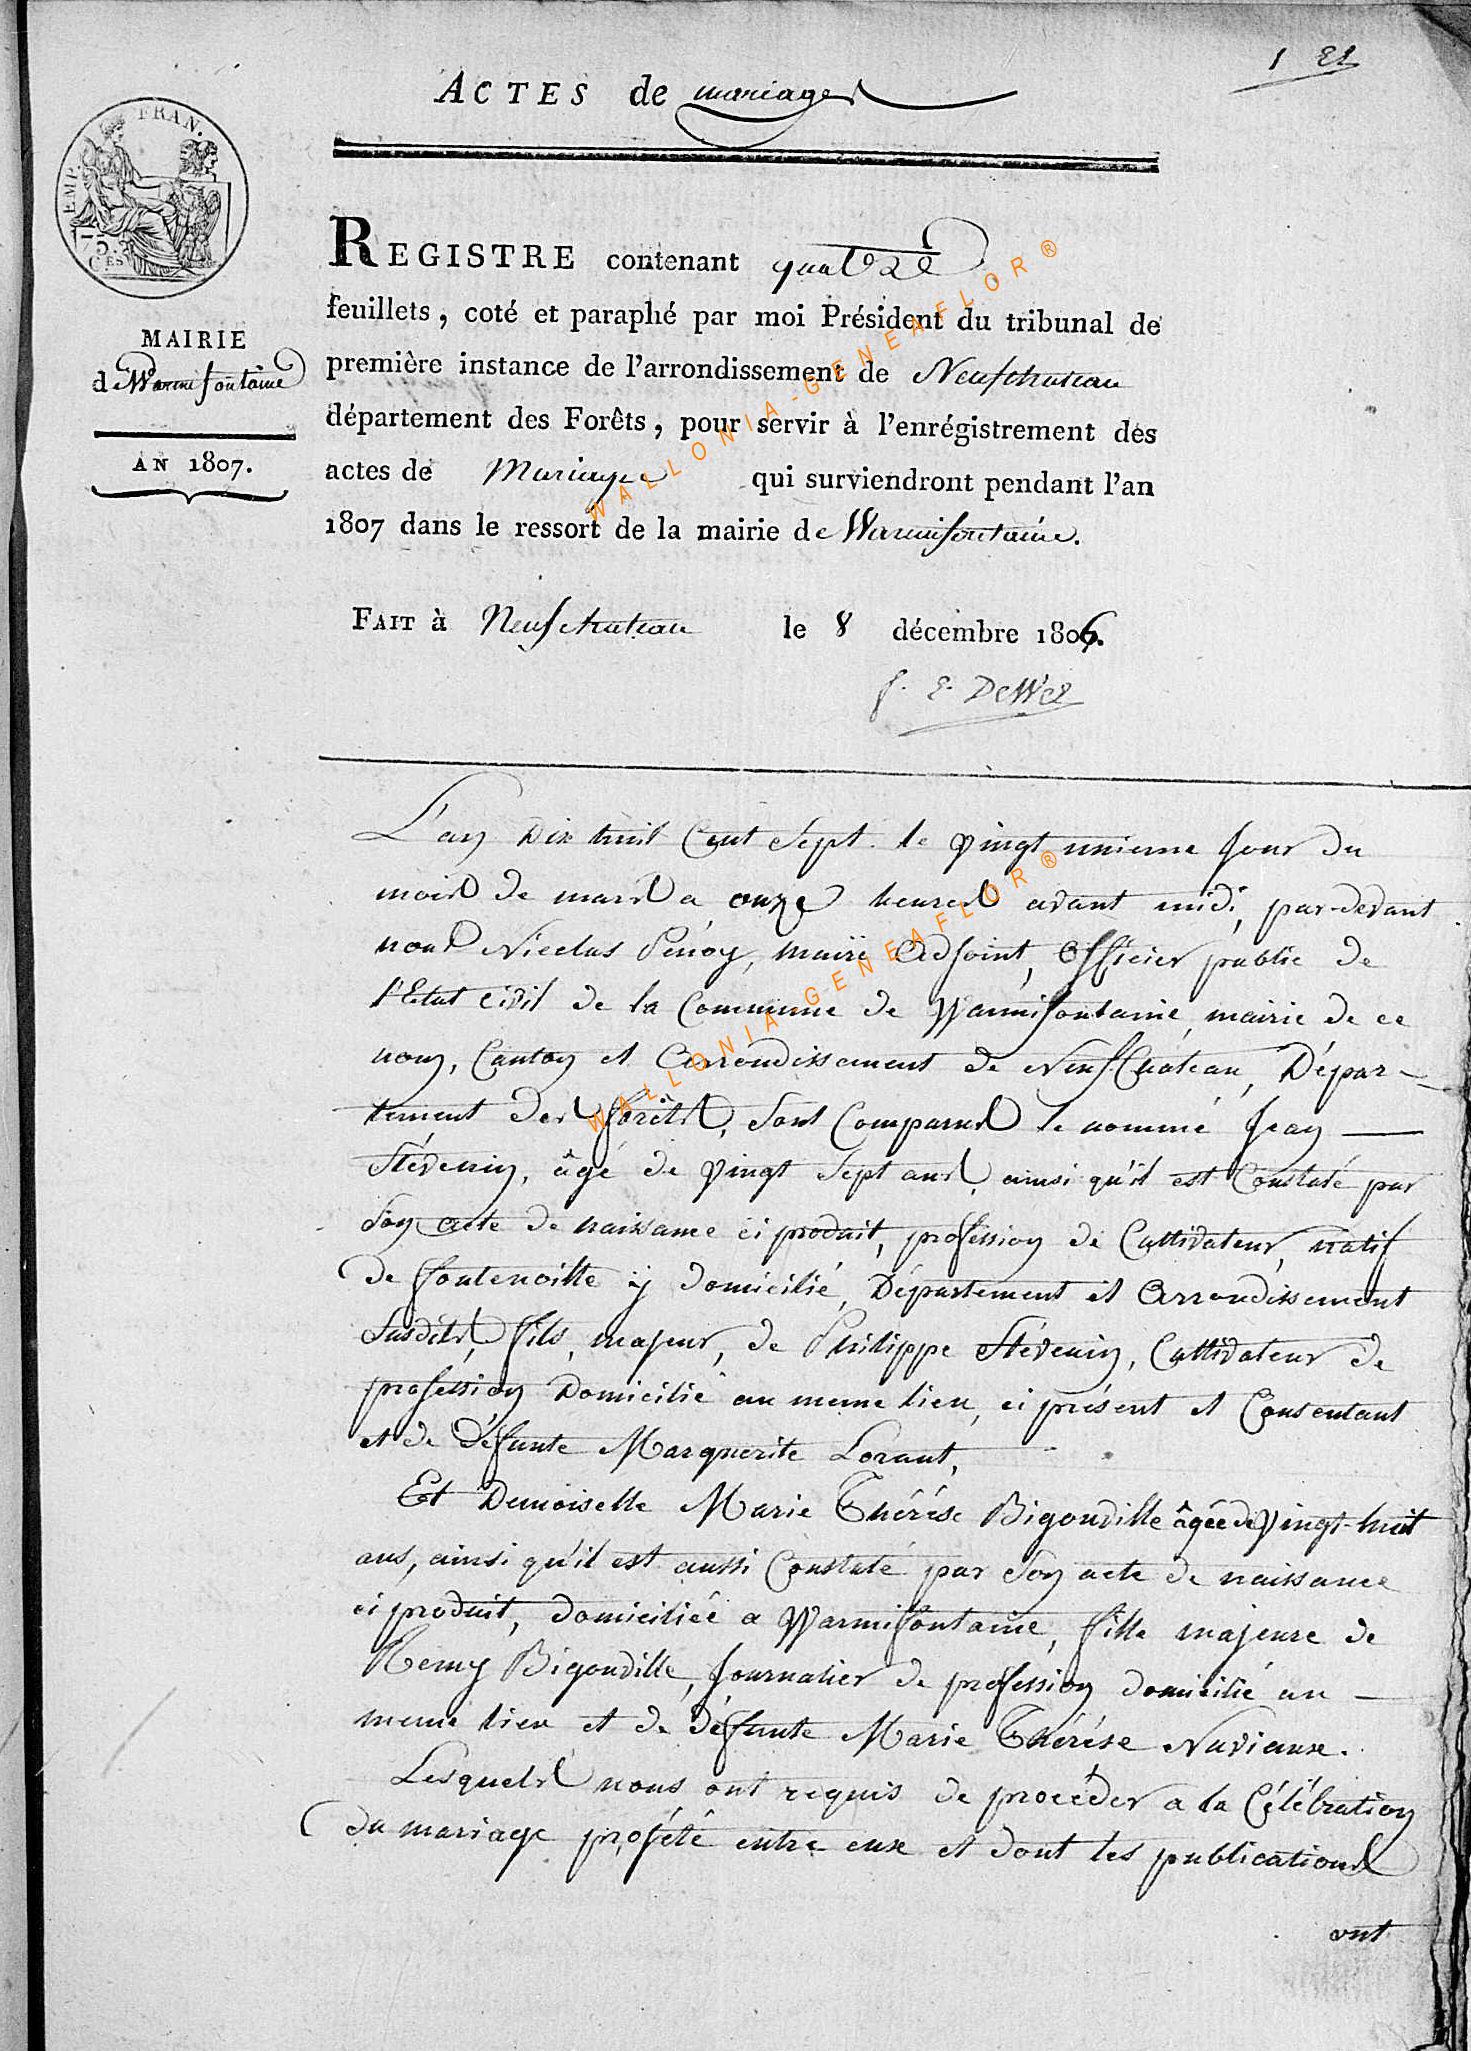 1 El
ACTES de mariages
EMP. FRAN.
75.
C.ES
MAIRIE
de Warmifontaine
AN 1807.
REGISTRE contenant quatre
feuillets, coté et paraphé par moi Président du tribunal de
première instance de l'arrondissement de Neufchateau
département des Forêts, pour servir à l'enrégistrement des
actes de Mariage qui surviendront pendant l'an
1807 dans le ressort de la mairie de Warmifontaine.
FAIT à Neufchateau le 8 décembre 1806.
f. E. DeWez
L'an Dix huit Cent Sept. le vingt unieme Jour du
mois de mars a onze heures avant midi, par-devant
nous Nicolas Penoy, maire Adjoint, Officier public de
l'Etat civil de la Commune de Warmifontaine, mairie de ce
nom, Canton et Arrondissement de Neuf-Château, Dépar-
tement des forêts, Sont Comparus le nommé Jean
Stévenin, âgé de vingt Sept ans, ainsi qu'il est Constaté par
Son acte de naissance ci produit, profession de Cultivateur, natif
de fontenoille ÿ domicilié, Département et Arrondissement
Susdits, fils, majeur, de Philippe Stévenin, Cultivateur de
profession Domicilié au meme lieu, ci présent et Consentant
et de défunte Marguerite Lorant,
Et Demoiselle Marie Thérèse Bigonville âgée de vingt-huit
ans, ainsi qu'il est aussi Constaté par Son acte de naissance
ci produit, domiciliée a Warmifontaine, fille majeure de
Remy Bigonville, Journalier de profession domicilié au
meme lieu et de défunte Marie Thérése Naviaux.
Lesquels nous ont requis de procéder a la Célébration
du mariage projété entre eux et dont les publications
ont
WALLONIA-GENEAFLOR®
WALLONIA-GENEAFLOR®